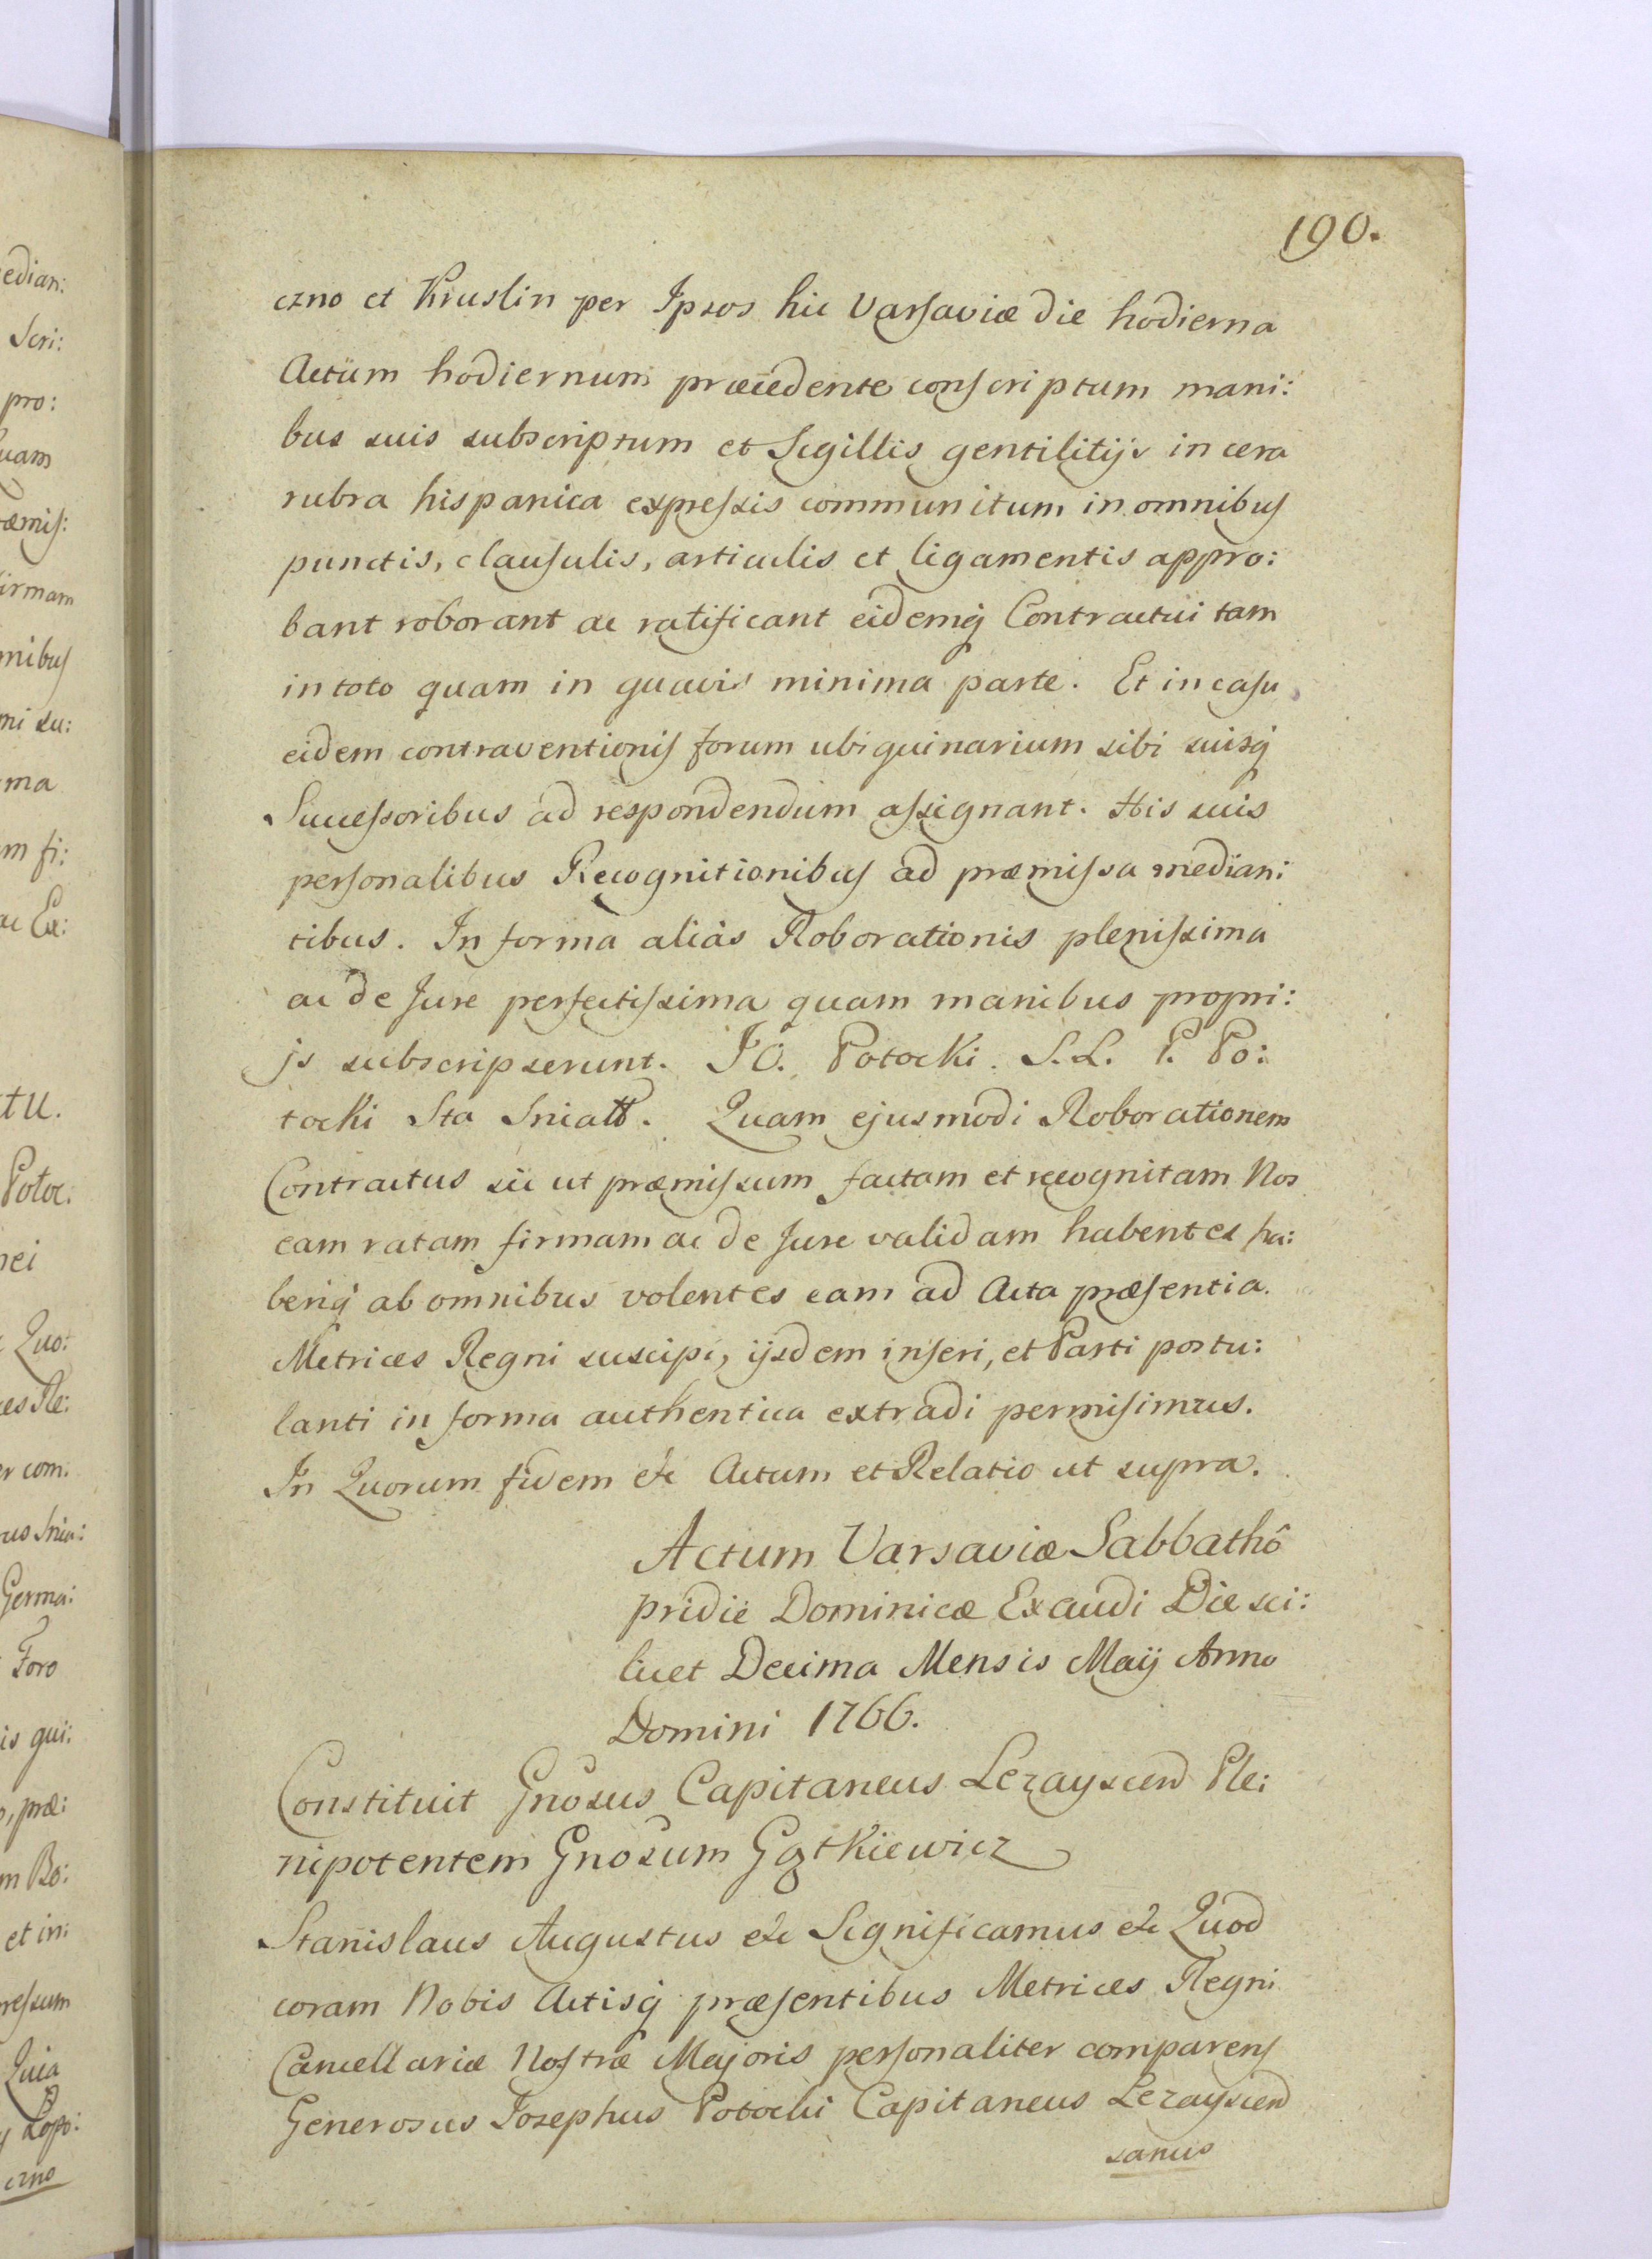 190.
czno et Kruslin per Ipsos hic Varsaviæ die hodierna
Actüm hodiernum præcedente conscriptum mani:
bus suis subscriptum et Sigillis gentilitijs in cera
rubra hispanica expressis communitum in omnibus
punctis, clausulis, articulis et ligamentis appro:
bant roborant ac ratificant eidemq Contractui tam
in toto quam in quavis minima parte. Et in casu
eidem contraventionis forum ubiquinarium sibi suisq
Successoribus ad respondendum assignant. His suis
personalibus Recognitionibus ad præmissa median:
tibus. In forma aliàs Roborationis plenissima
ac de Jure perfectissima quam manibus propri:
js subscripserunt. JO. Potocki. S.L. P. Po:
tocki Sta Sniatt. Quam ejusmodi Roborationem
Contractus sic ut præmissum factam et recognitam Nos
eam ratam firmam ac de Jure validam habentes ha:
beriq ab omnibus volentes eam ad Acta præsentia
Metrices Regni suscipi, ijsdem inseri, et Parti postu:
lanti in forma authentica extradi permisimus.
In Quorum fidem etc Actum et Relatio ut supra.
Actum Varsaviæ Sabbathô
pridie Dominicæ Exaudi Die sci:
licet Decima Mensis Maij Anno
Domini 1766.
Constituit Gnosus Capitaneus Lezayscen Ple:
nipotentem Gnosum Gątkiewicz
Stanislaus Augustus etc Significamus etc Quod
coram Nobis Actisq præsentibus Metrices Regni
Cancellariæ Nostræ Majoris personaliter comparens
Generosus Josephus Potocki Capitaneus Lezayscen
sanus